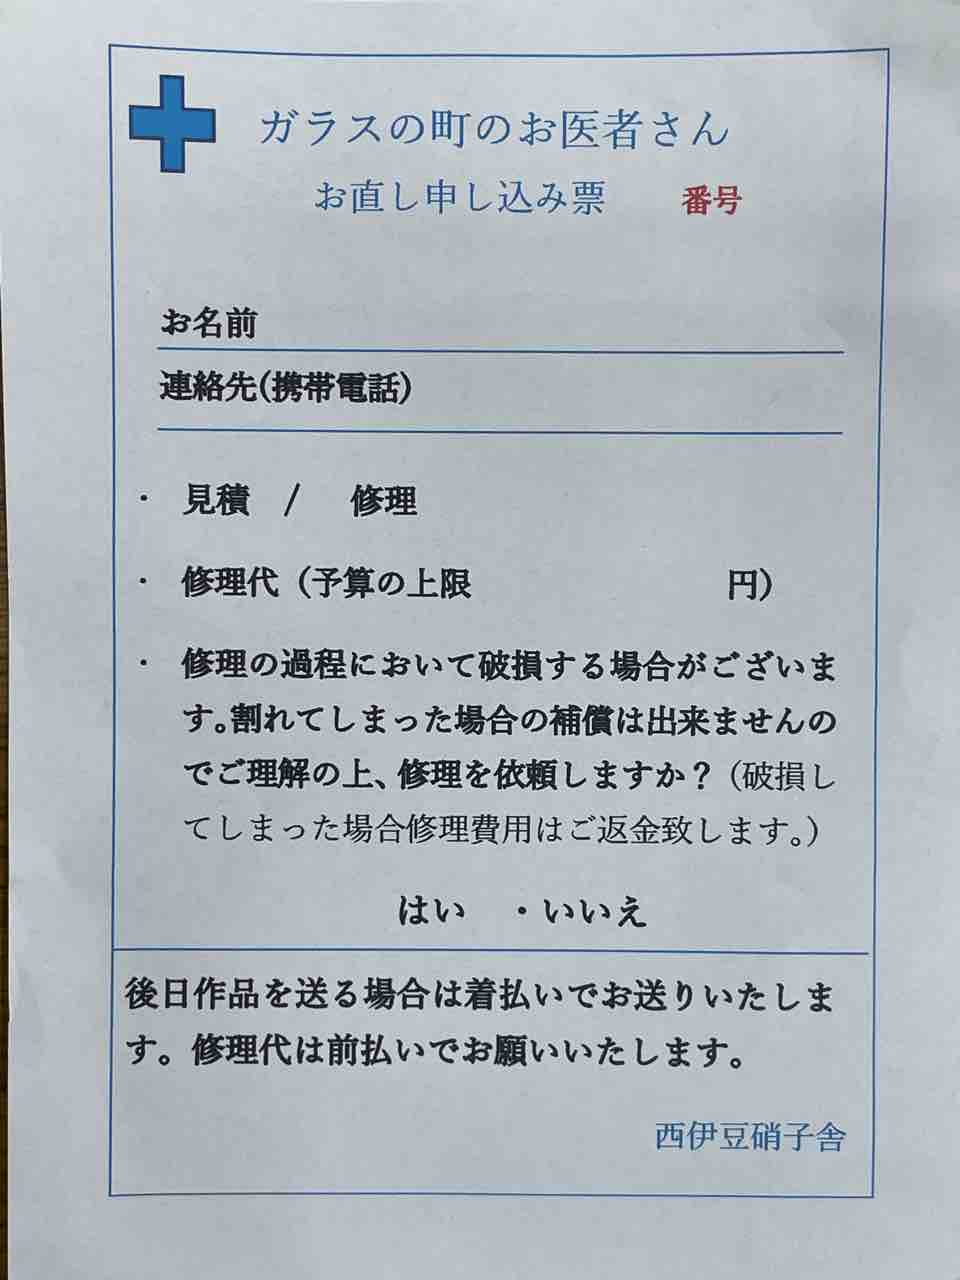 ガラスの町のお医者さん
お直し申し込み票　　番号
お名前
連絡先(携帯電話)
・ 見積　/　修理
・ 修理代（予算の上限　　　　　　　　円）
・ 修理の過程において破損する場合がございま
す。割れてしまった場合の補償は出来ませんの
でご理解の上、修理を依頼しますか？（破損し
てしまった場合修理費用はご返金致します。）
はい　・いいえ
後日作品を送る場合は着払いでお送りいたしま
す。修理代は前払いでお願いいたします。
西伊豆硝子舎